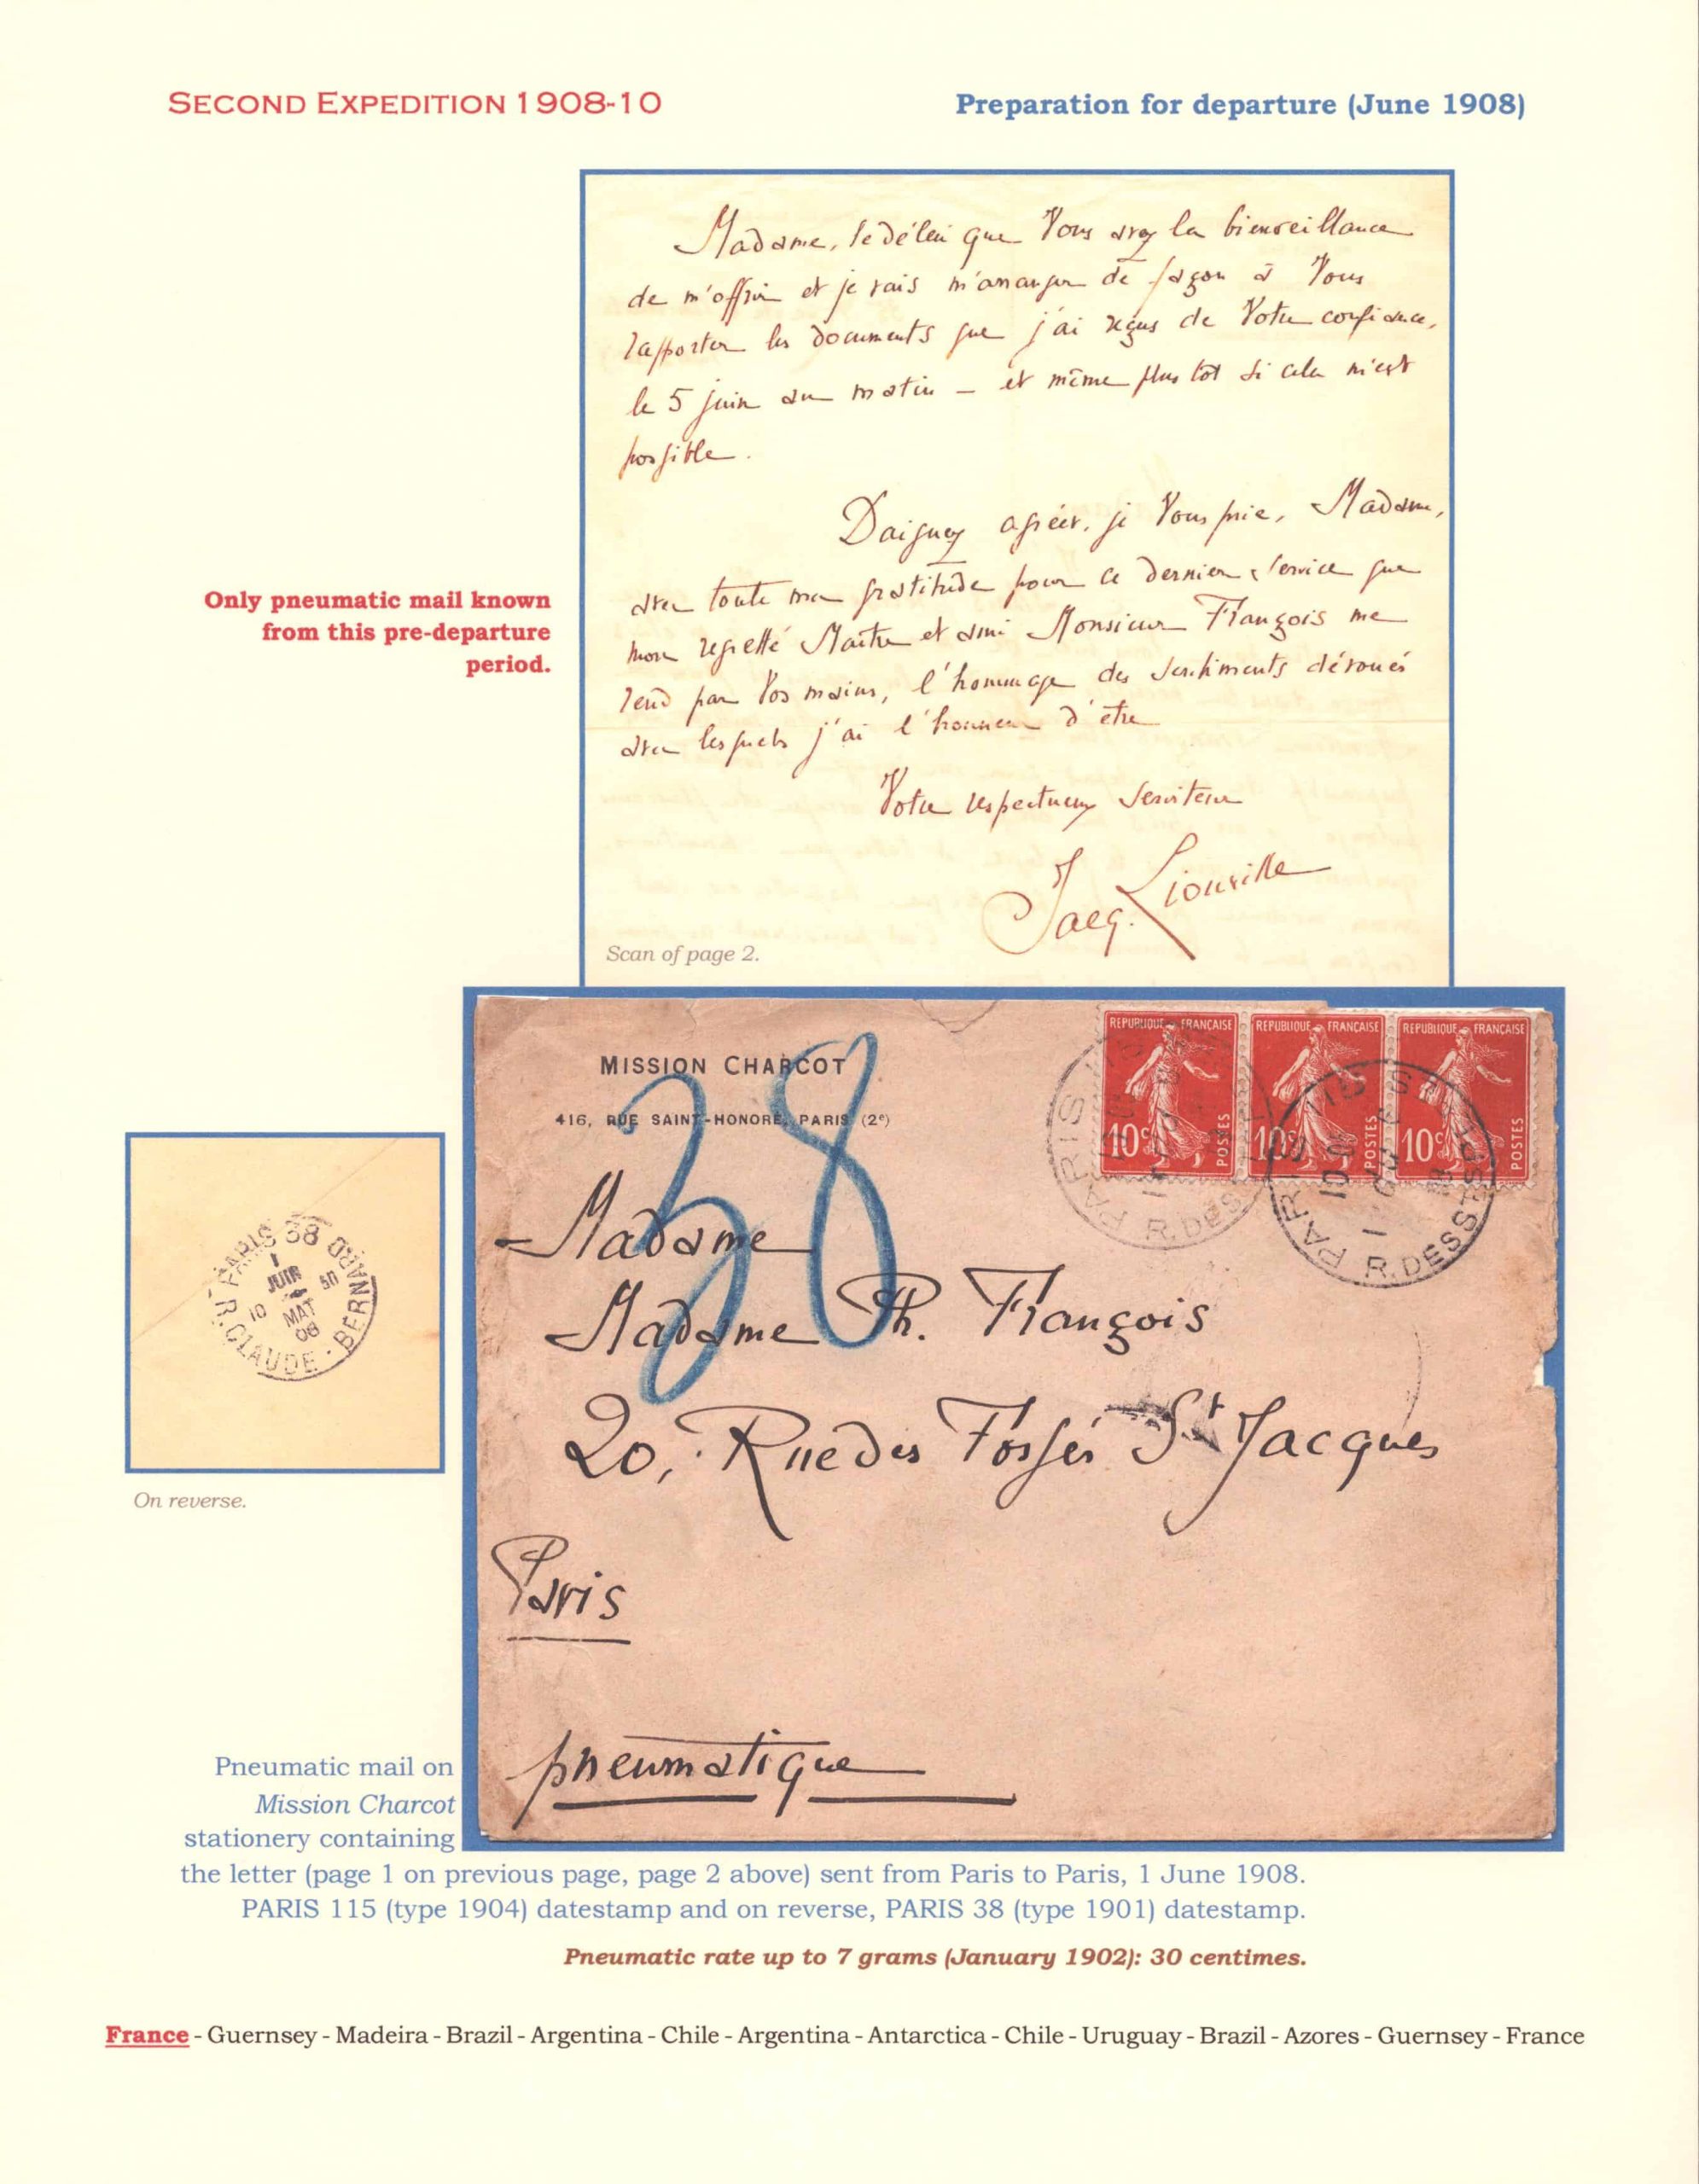 SECOND EXPEDITION 1908-10
Preparation for departure (June 1908)
Madame, le délai que Vous avez la bienveillance
de m'offrir et je vais m'arranger de façon à Vous
rapporter les documents que j'ai reçus de Votre confiance,
le 5 juin au matin – et même plus tôt si cela m'est
possible.
Daignez agréer, je Vous prie, Madame,
avec toute ma gratitude pour ce dernier service que
mon regretté Maître et ami Monsieur François me
rend par Vos mains, l'hommage des sentiments dévoués
avec lesquels j'ai l'honneur d'être
Votre respectueux serviteur
Jacq. Liouville
Scan of page 2.
Only pneumatic mail known
from this pre-departure
period.
MISSION CHARCOT
416, RUE SAINT-HONORÉ, PARIS (2e)
38
REPUBLIQUE FRANÇAISE
10c POSTES
REPUBLIQUE FRANÇAISE
10c POSTES
REPUBLIQUE FRANÇAISE
10c POSTES
PARIS 115
R. DES
PARIS 115
R. DES STS
Madame
Madame Ph. François
20, Rue des Fossés St Jacques
Paris
pneumatique
PARIS 38
1
JUIN
10 50
MAT
08
R. CLAUDE-BERNARD
On reverse.
Pneumatic mail on
Mission Charcot
stationery containing
the letter (page 1 on previous page, page 2 above) sent from Paris to Paris, 1 June 1908.
PARIS 115 (type 1904) datestamp and on reverse, PARIS 38 (type 1901) datestamp.
Pneumatic rate up to 7 grams (January 1902): 30 centimes.
France - Guernsey - Madeira - Brazil - Argentina - Chile - Argentina - Antarctica - Chile - Uruguay - Brazil - Azores - Guernsey - France